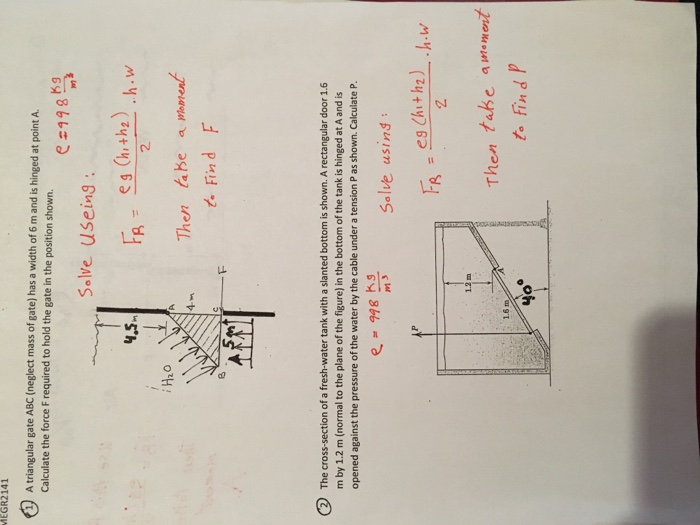 MEGR2141
1 A triangular gate ABC (neglect mass of gate) has a width of 6 m and is hinged at point A.
Calculate the force F required to hold the gate in the position shown.
ρ=998 kg/m³
Solve Useing:
FR = ρg(h1+h2)/2 . h.w
Then take a moment
to Find F
4.5m
H2O
A
4m
B
C
5m
F
2 The cross-section of a fresh-water tank with a slanted bottom is shown. A rectangular door 1.6
m by 1.2 m (normal to the plane of the figure) in the bottom of the tank is hinged at A and is
opened against the pressure of the water by the cable under a tension P as shown. Calculate P.
ρ = 998 kg/m³
Solve using:
FR = ρg(h1+h2)/2 . h.w
Then take a moment
to Find P
P
1.2 m
A
1.6 m
40°